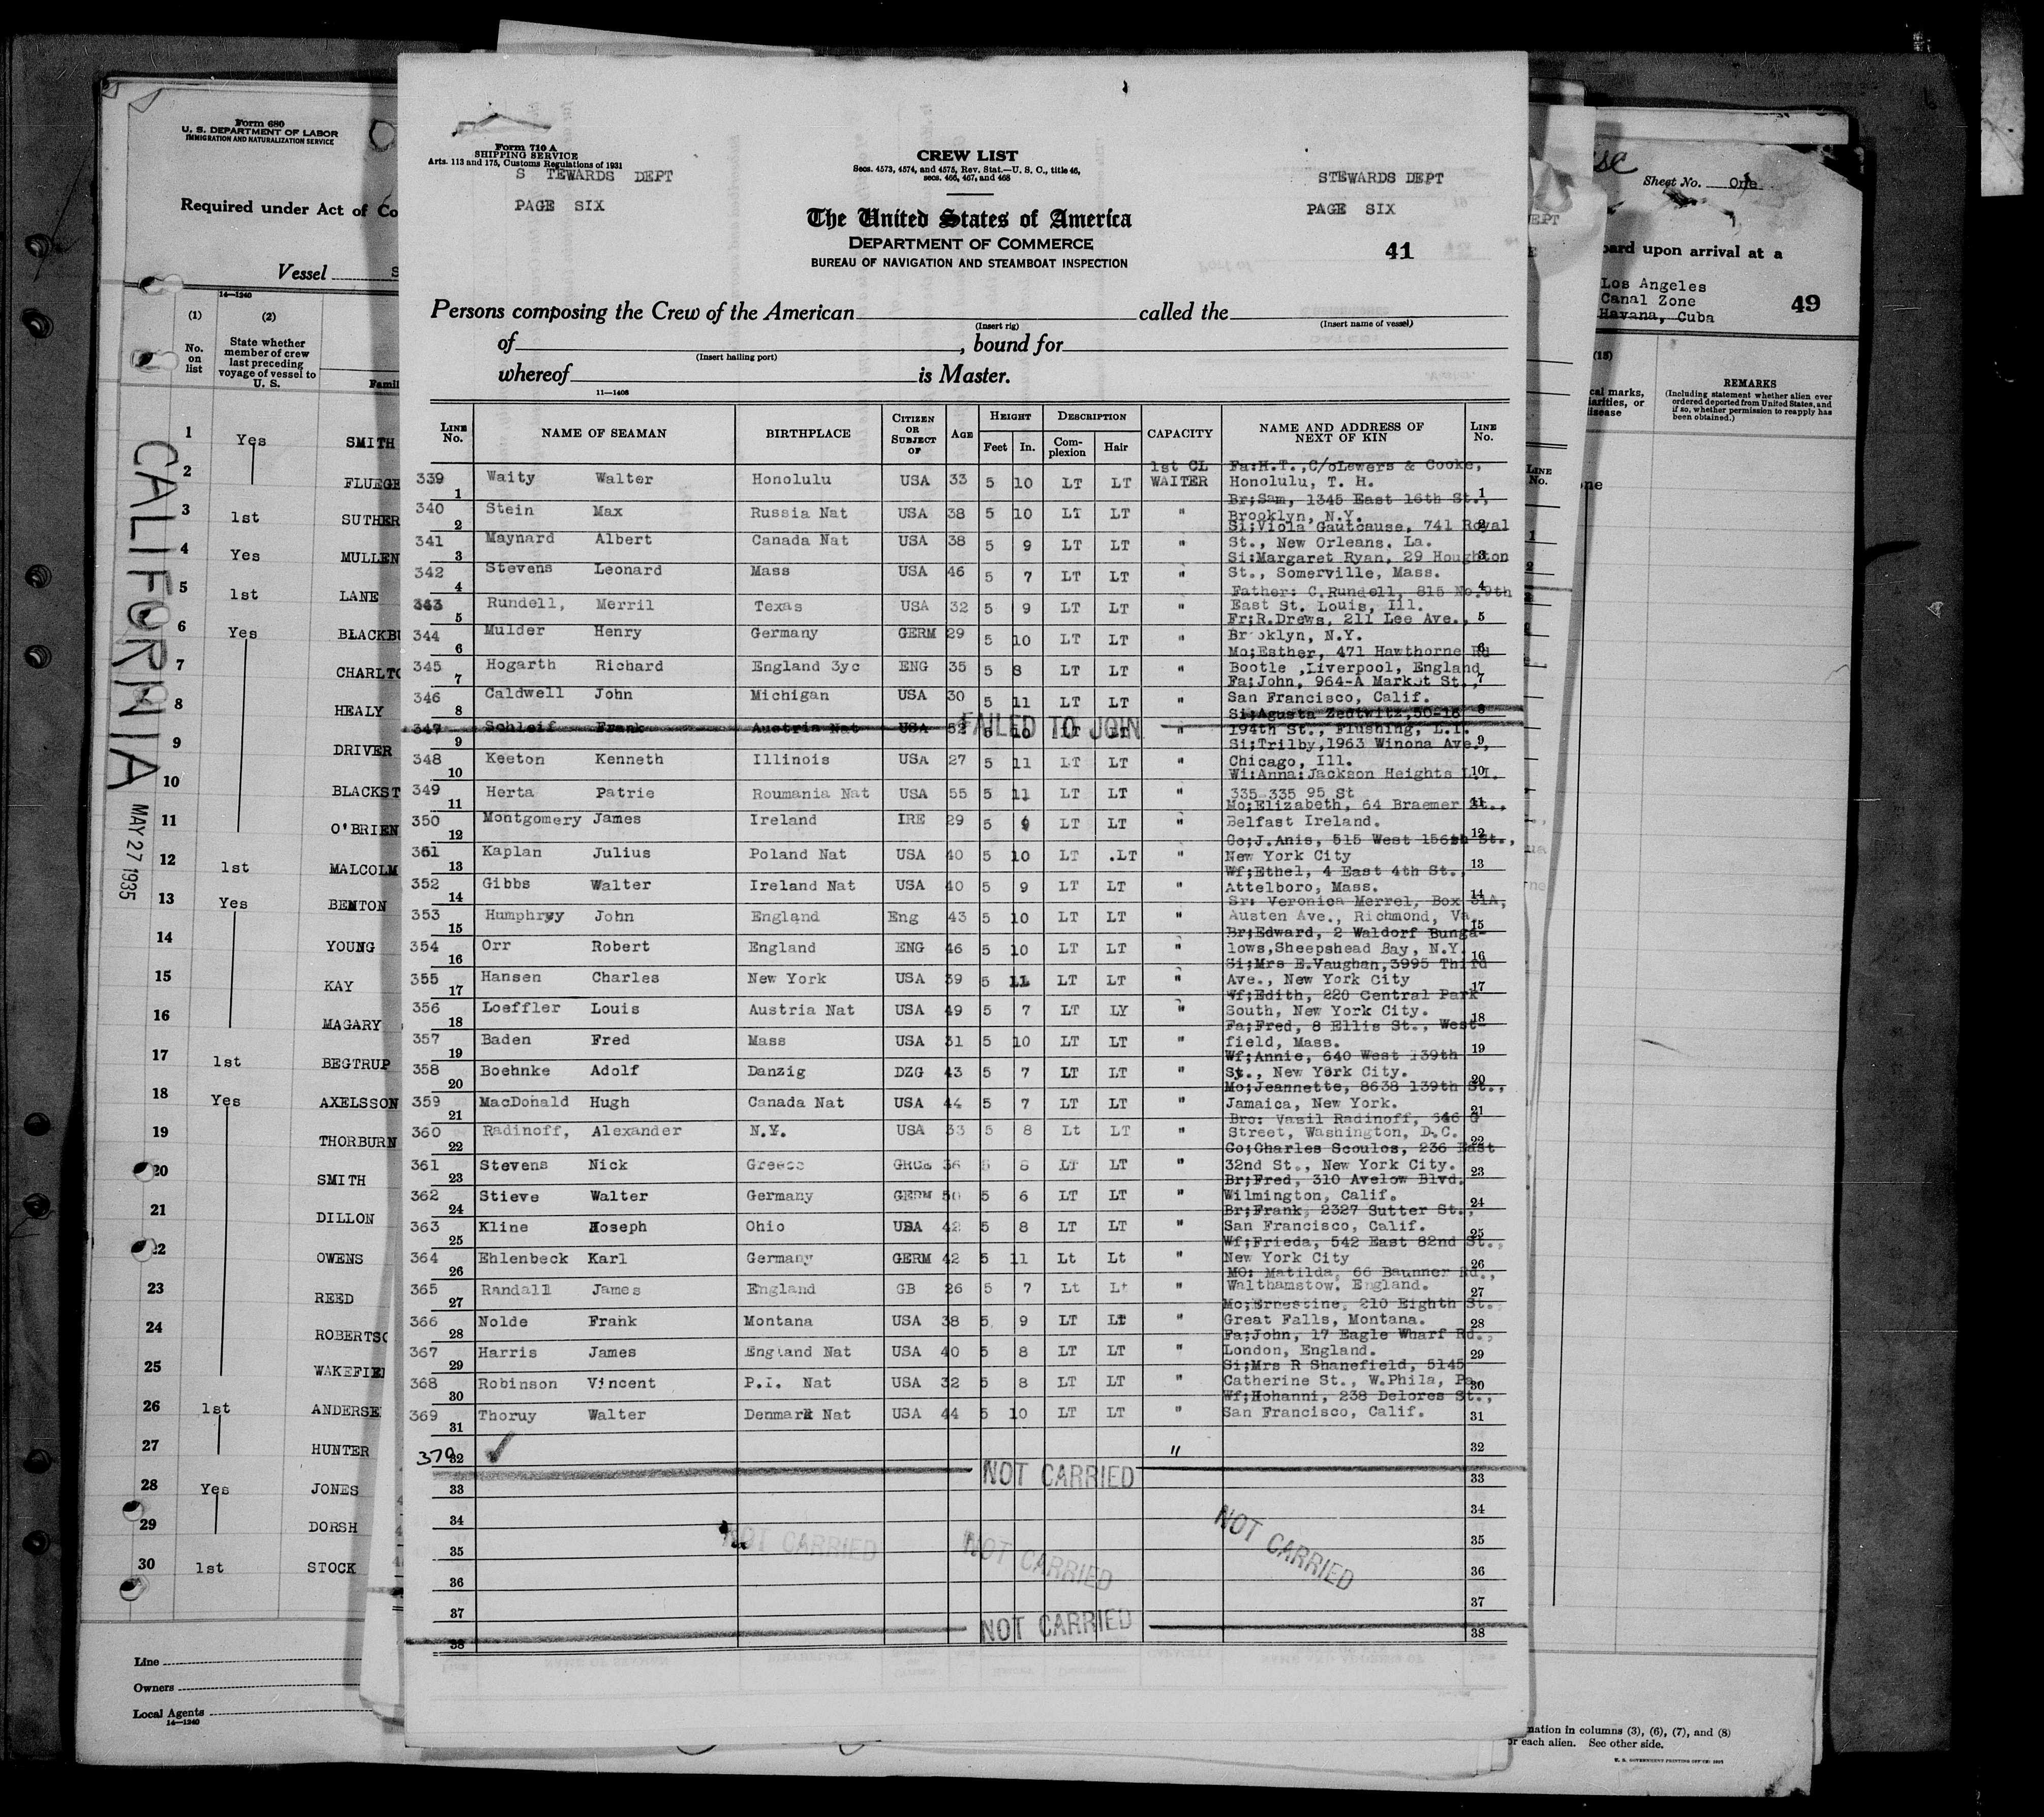 Form 680
U. S. DEPARTMENT OF LABOR
IMMIGRATION AND NATURALIZATION SERVICE
Required under Act of Co
Vessel S
14—1240
(1) (2)
No. on list
State whether member of crew last preceding voyage of vessel to U. S.
Famil
1 Yes SMITH
2 FLUEGE
3 1st SUTHER
4 Yes MULLEN
5 1st LANE
6 Yes BLACKBU
7 CHARLTO
8 HEALY
9 DRIVER
10 BLACKST
11 O'BRIEN
12 1st MALCOLM
13 Yes BENTON
14 YOUNG
15 KAY
16 MAGARY
17 1st BEGTRUP
18 Yes AXELSSON
19 THORBURN
20 SMITH
21 DILLON
22 OWENS
23 REED
24 ROBERTSO
25 WAKEFIE
26 1st ANDERSE
27 HUNTER
28 Yes JONES
29 DORSH
30 1st STOCK
Line
Owners
Local Agents
14—1240
CALIFORNIA
MAY 27 1935
Form 710 A
SHIPPING SERVICE
Arts. 113 and 175, Customs Regulations of 1931
S TEWARDS DEPT
PAGE SIX
CREW LIST
Secs. 4573, 4574, and 4575, Rev. Stat.—U. S. C., title 46,
secs. 466, 467, and 468
The United States of America
DEPARTMENT OF COMMERCE
BUREAU OF NAVIGATION AND STEAMBOAT INSPECTION
STEWARDS DEPT
PAGE SIX
41
Persons composing the Crew of the American called the
(Insert rig) (Insert name of vessel)
of , bound for
(Insert hailing port)
whereof is Master.
11—1406
LINE No. NAME OF SEAMAN BIRTHPLACE CITIZEN OR SUBJECT OF AGE HEIGHT DESCRIPTION CAPACITY NAME AND ADDRESS OF NEXT OF KIN LINE No.
Feet In. Complexion Hair
1st CL Fa:H.T.,C/oLewers & Cooke,
339 1 Waity Walter Honolulu USA 33 5 10 LT LT WAITER Honolulu, T. H. 1
Br;Sam, 1345 East 16th St.,
340 2 Stein Max Russia Nat USA 38 5 10 LT LT " Brooklyn, N.Y. 2
Si;Viola Gautcause, 741 Royal
341 3 Maynard Albert Canada Nat USA 38 5 9 LT LT " St., New Orleans. La. 3
Si:Margaret Ryan, 29 Houghton
342 4 Stevens Leonard Mass USA 46 5 7 LT LT " St., Somerville, Mass. 4
Father: C.Rundell, 815 No.9th
343 5 Rundell, Merril Texas USA 32 5 9 LT LT " East St. Louis, Ill. 5
Fr;R.Drews, 211 Lee Ave.,
344 6 Mulder Henry Germany GERM 29 5 10 LT LT " Brooklyn, N.Y. 6
Mo;Esther, 471 Hawthorne Rd
345 7 Hogarth Richard England 3yc ENG 35 5 8 LT LT " Bootle ,Liverpool, England 7
Fa;John, 964-A Market St.,
346 8 Caldwell John Michigan USA 30 5 11 LT LT " San Francisco, Calif. 8
Si;Agusta Zedtwitz,50-18
347 9 Schleif Frank Austria Nat USA 52 5 10 LT LT " 194th St., Flushing, L.I. 9
FAILED TO JOIN
Si;Trilby,1963 Winona Ave.,
348 10 Keeton Kenneth Illinois USA 27 5 11 LT LT " Chicago, Ill. 10
Wi:Anna:Jackson Heights L.I.
349 11 Herta Patrie Roumania Nat USA 55 5 11 LT LT " 335 335 95 St 11
Mo;Elizabeth, 64 Braemer St.,
350 12 Montgomery James Ireland IRE 29 5 9 LT LT " Belfast Ireland. 12
Co;J.Anis, 515 West 156th St.,
351 13 Kaplan Julius Poland Nat USA 40 5 10 LT .LT " New York City 13
Wf;Ethel, 4 East 4th St.,
352 14 Gibbs Walter Ireland Nat USA 40 5 9 LT LT " Attelboro, Mass. 14
Sr: Veronica Merrel, Box 31A,
353 15 Humphrey John England Eng 43 5 10 LT LT " Austen Ave., Richmond, Va. 15
Br;Edward, 2 Waldorf Bunga-
354 16 Orr Robert England ENG 46 5 10 LT LT " lows,Sheepshead Bay, N.Y. 16
Si;Mrs E.Vaughan,3995 Third
355 17 Hansen Charles New York USA 39 5 11 LT LT " Ave., New York City 17
Wf;Edith, 220 Central Park
356 18 Loeffler Louis Austria Nat USA 49 5 7 LT LY " South, New York City. 18
Fa;Fred, 8 Ellis St., West-
357 19 Baden Fred Mass USA 31 5 10 LT LT " field, Mass. 19
Wf;Annie, 640 West 139th
358 20 Boehnke Adolf Danzig DZG 43 5 7 LT LT " St., New York City. 20
Mo;Jeannette, 8638 139th St.,
359 21 MacDonald Hugh Canada Nat USA 44 5 7 LT LT " Jamaica, New York. 21
Bro: Vasil Radinoff, 646 G
360 22 Radinoff, Alexander N.Y. USA 33 5 8 Lt LT " Street, Washington, D.C. 22
Co;Charles Scoulos, 236 East
361 23 Stevens Nick Greece 36 5 8 LT LT " 32nd St., New York City. 23
Br;Fred, 310 Avelow Blvd.
362 24 Stieve Walter Germany GERM 50 5 6 LT LT " Wilmington, Calif. 24
Br;Frank, 2327 Sutter St.,
363 25 Kline Hoseph Ohio USA 42 5 8 LT LT " San Francisco, Calif. 25
Wf;Frieda, 542 East 82nd St.,
364 26 Ehlenbeck Karl Germany GERM 42 5 11 Lt Lt " New York City 26
MO: Matilda, 66 Baunner Rd.,
365 27 Randall James England GB 26 5 7 Lt Lt " Walthamstow. England. 27
Mo;Ernestine, 210 Eighth St.,
366 28 Nolde Frank Montana USA 38 5 9 LT LT " Great Falls, Montana. 28
Fa;John, 17 Eagle Wharf Rd.,
367 29 Harris James England Nat USA 40 5 8 LT LT " London, England. 29
Si;Mrs R Shanefield, 5145
368 30 Robinson Vincent P.I. Nat USA 32 5 8 LT LT " Catherine St., W.Phila, Pa. 30
Wf;Hohanni, 238 Delores St.,
369 31 Thoruy Walter Denmark Nat USA 44 5 10 LT LT " San Francisco, Calif. 31
370 32 " 32
NOT CARRIED
33 33
34 34
NOT CARRIED NOT CARRIED NOT CARRIED
35 35
36 36
37 37
NOT CARRIED
38 38
Sheet No. One
oard upon arrival at a
Los Angeles
Canal Zone
Havana, Cuba
49
(15)
cal marks,
iarities, or
disease
REMARKS
(Including statement whether alien ever ordered deported from United States, and if so, whether permission to reapply has been obtained.)
LINE No.
mation in columns (3), (6), (7), and (8)
or each alien. See other side.